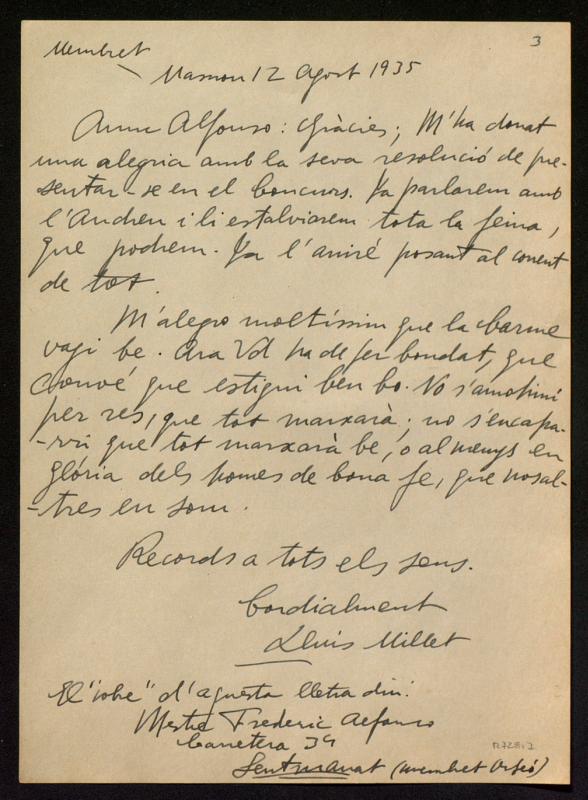 3
Membret
Masnou 12 Agost 1935
Amic Alfonso: Gràcies; M'ha donat
una alegria amb la seva resolució de pre-
sentar-se en el Concurs. Ja parlarem amb
l'Andreu i li estalviarem tota la feina,
que podrem. Ja l'aniré posant al corrent
de tot.
M'alegro moltíssim que la Carme
vagi be. Ara Vd ha de fer bondat, que
convé que estigui ben bo. No s'amohini
per res, que tot marxarà; no s'encapa-
-rri que tot marxarà be, o al menys en
glória dels homes de bona fe, que nosal-
-tres en som.
Records a tots els seus.
Cordialment
Lluis Millet
El "sobre" d'aquesta lletra diu:
Mestre Frederic Alfonso
Carretera 34
Sentmanat (membret Orfeó)